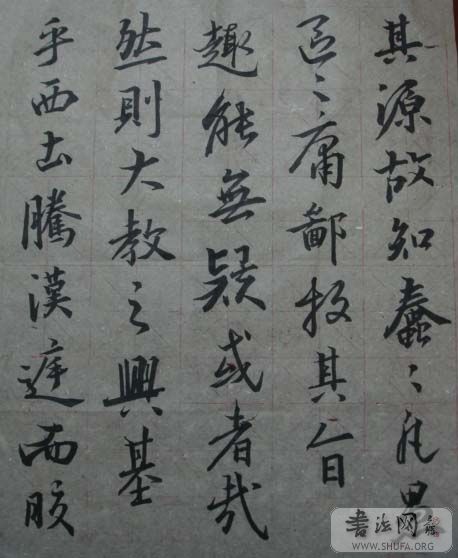 其源故知蠢〻凡
區〻庸鄙投其旨
趣能無疑或者哉
然則大教之興基
乎西土騰漢庭而皎
書法网
WWW.SHUFA.ORG